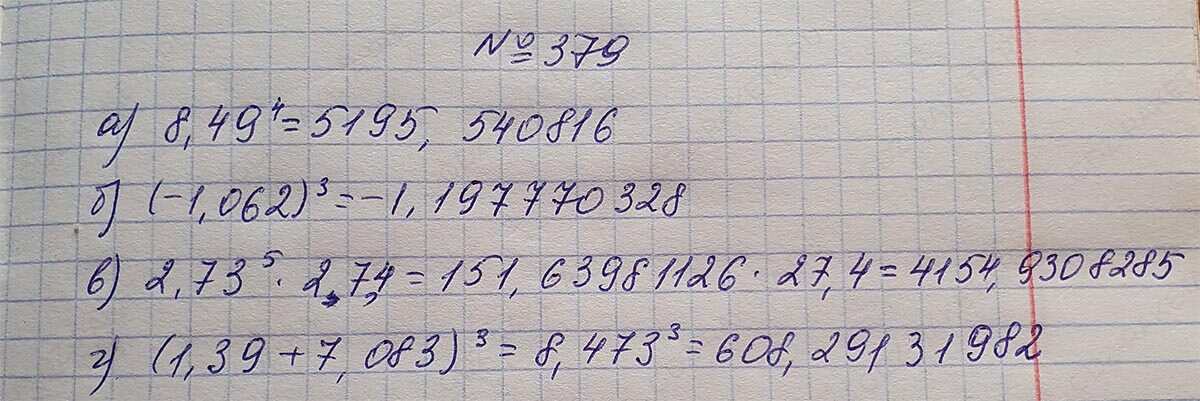 № 379
а) 8,49⁴ = 5195, 540816
б) (-1,062)³ = -1,197770328
в) 2,73⁵ · 27,4 = 151, 63981126 · 27,4 = 4154,9308285
г) (1,39 + 7,083)³ = 8,473³ = 608,29131982